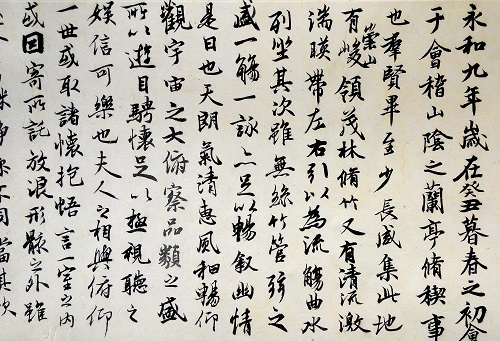 永和九年歲在癸丑暮春之初會
于會稽山陰之蘭亭脩稧事
也羣賢畢至少長咸集此地
有崇山峻領茂林脩竹又有清流激
湍暎帶左右引以為流觴曲水
列坐其次雖無絲竹管弦之
盛一觴一詠亦足以暢敘幽情
是日也天朗氣清惠風和暢仰
觀宇宙之大俯察品類之盛
所以遊目騁懷足以極視聽之
娛信可樂也夫人之相與俯仰
一世或取諸懷抱悟言一室之內
或因寄所託放浪形骸之外雖
不同當其欣